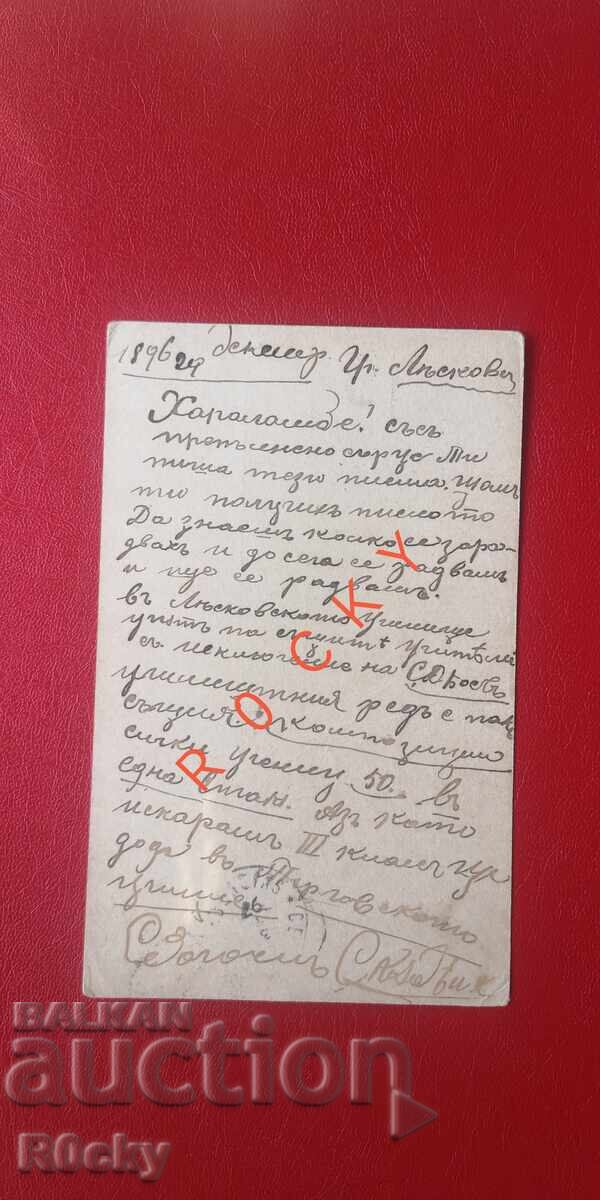 1896 29 Декемвр. Гр. Лѣсковец
Харалампе! съсъ
сърце Ти
пиша тези писма. Щомъ
ти получих писмото
Да знаешъ колко се зарад-
вахъ и до сега се радвамъ
и още се радвамъ.
въ Лѣсковското Училище
учатъ па същитѣ Учители
съ исключение на
училищния редъ е пакъ
същия композиции
сички ученици 50. въ
една стая. Азъ като
искарамъ III класъ ще
дода въ Търговското
училище
Сбогомъ
ROCKY
BALKAN
auction
R0cky